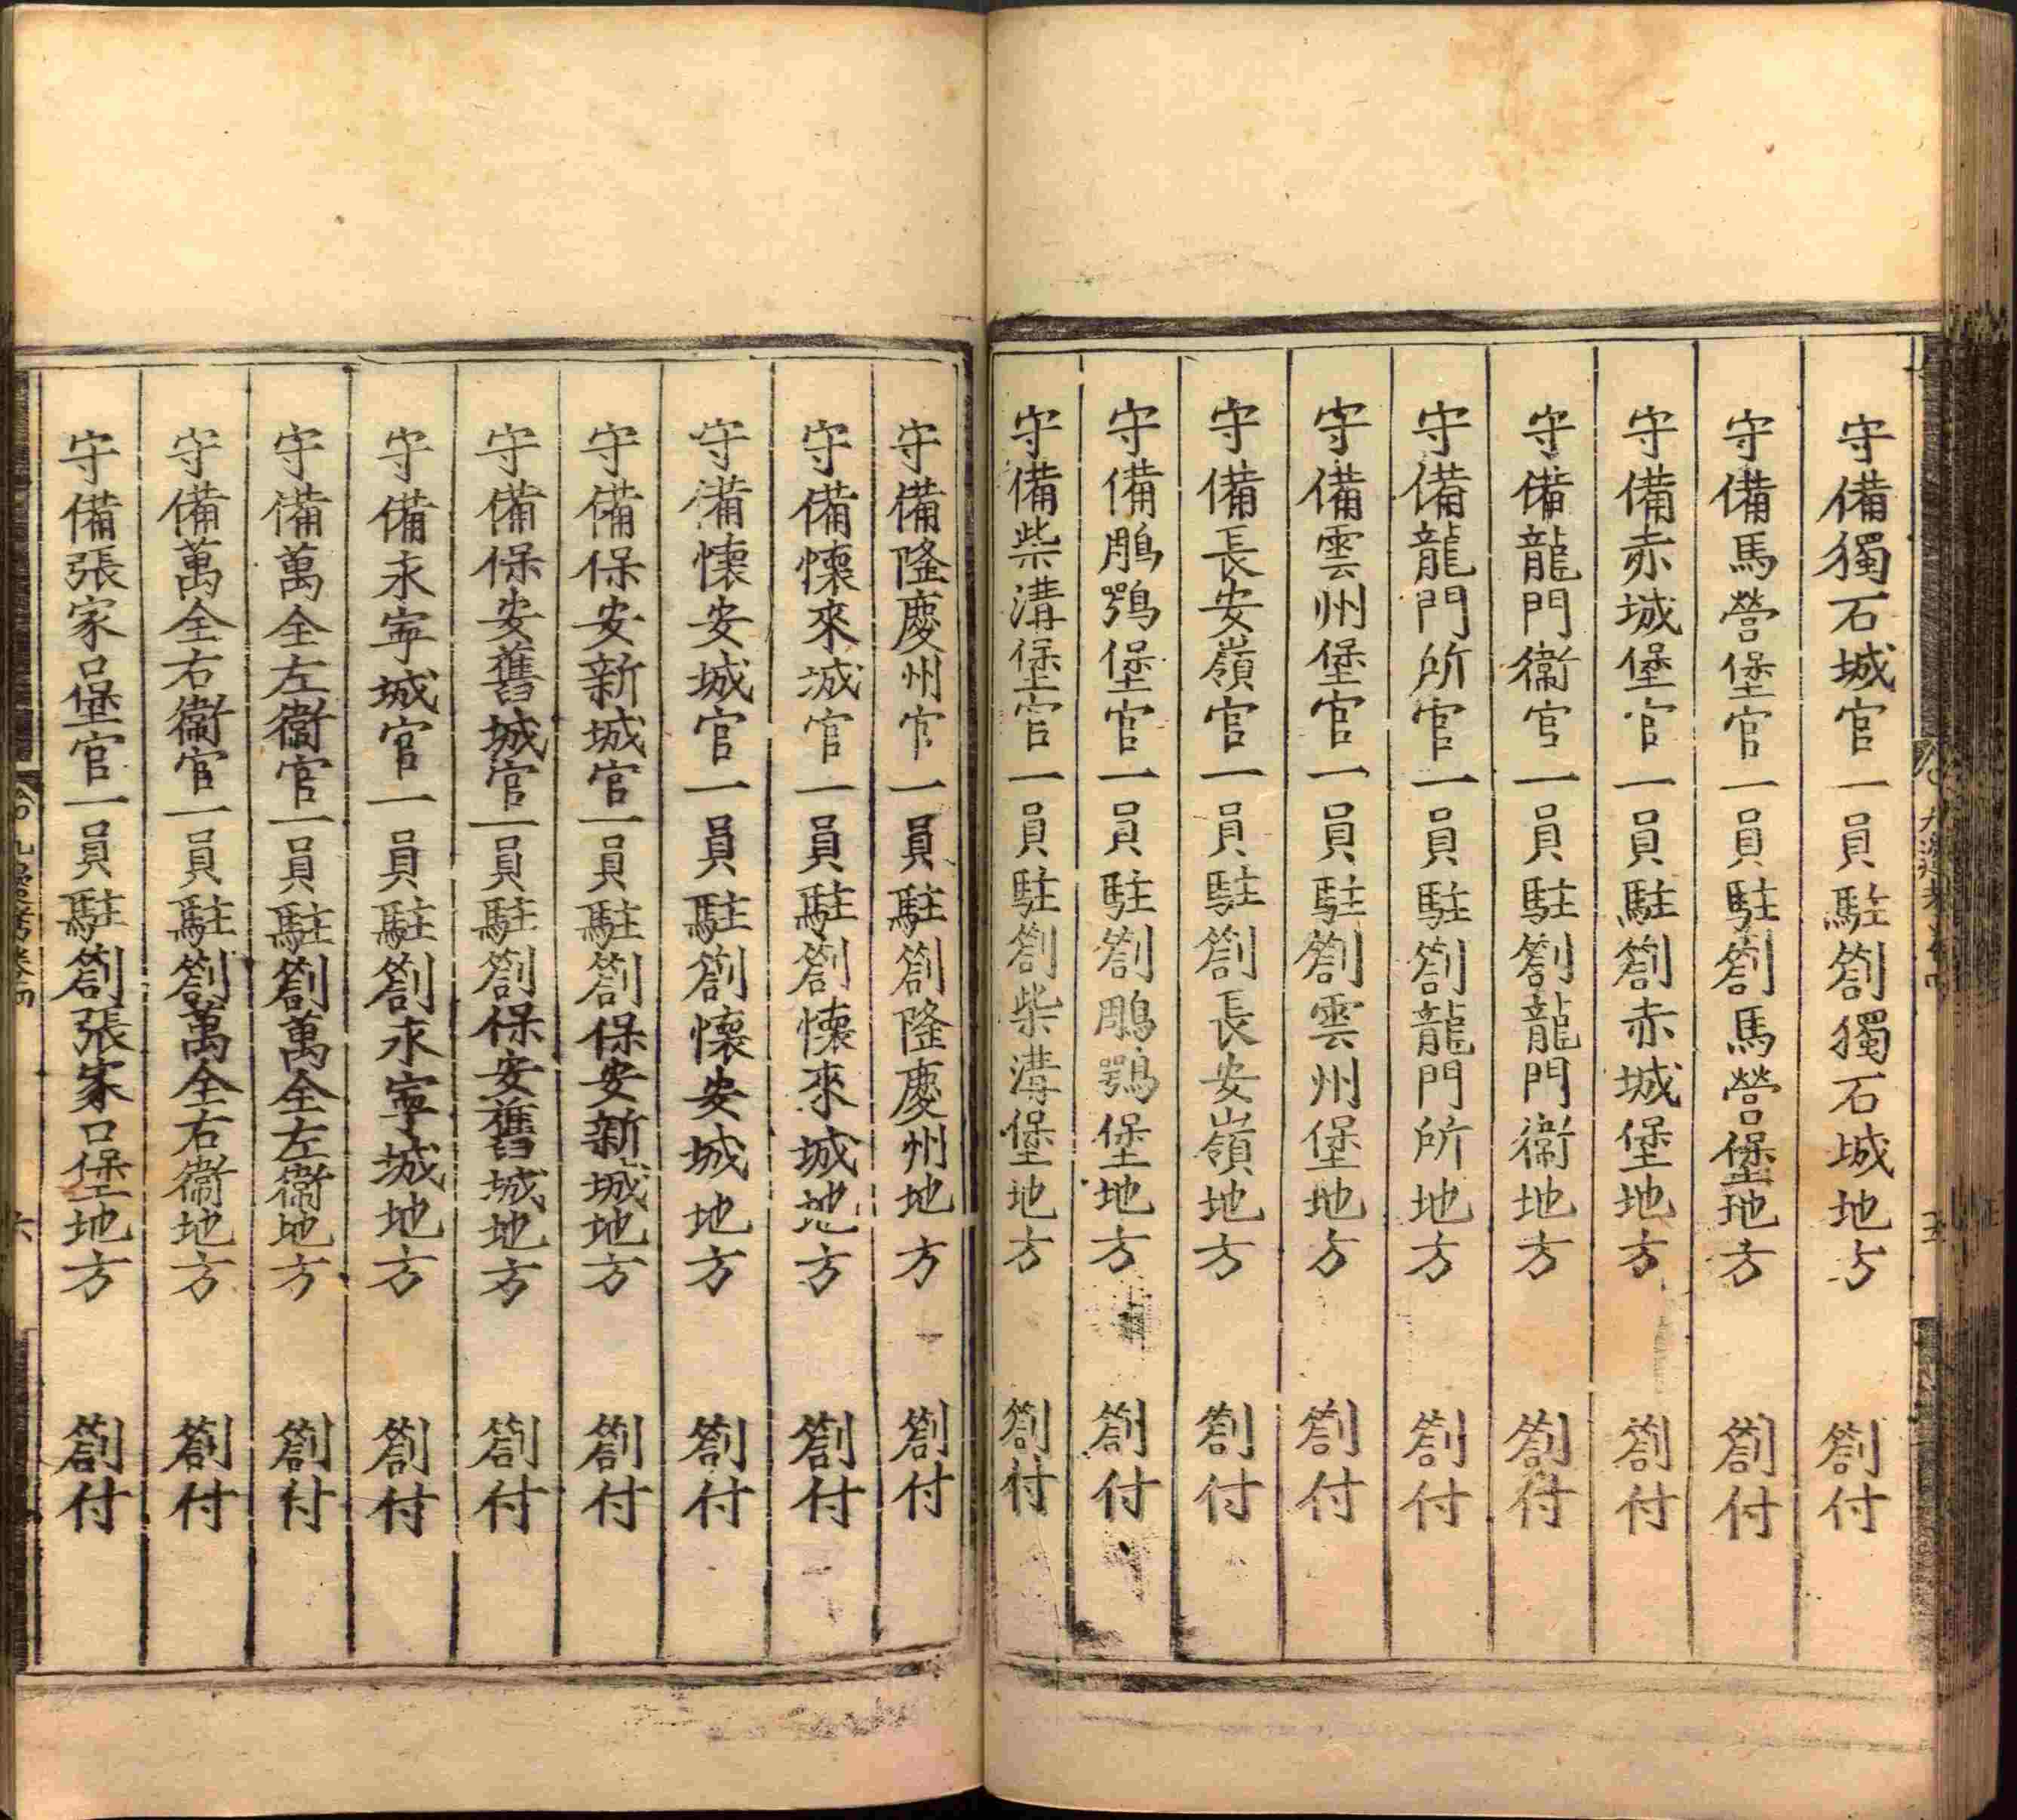 守備獨石城官一員駐劄獨石城地方 劄付
守備馬營堡官一員駐劄馬營堡地方 劄付
守備赤城堡官一員駐劄赤城堡地方 劄付
守備龍門衞官一員駐劄龍門衞地方 劄付
守備龍門所官一員駐劄龍門所地方 劄付
守備雲州堡官一員駐劄雲州堡地方 劄付
守備長安嶺官一員駐劄長安嶺地方 劄付
守備鵰鶚堡官一員駐劄鵰鶚堡地方 劄付
守備柴溝堡官一員駐劄柴溝堡地方 劄付
守備隆慶州官一員駐劄隆慶州地方 劄付
守備懷來城官一員駐劄懷來城地方 劄付
守備懷安城官一員駐劄懷安城地方 劄付
守備保安新城官一員駐劄保安新城地方 劄付
守備保安舊城官一員駐劄保安舊城地方 劄付
守備永寧城官一員駐劄永寧城地方 劄付
守備萬全左衞官一員駐劄萬全左衞地方 劄付
守備萬全右衞官一員駐劄萬全右衞地方 劄付
守備張家口堡官一員駐劄張家口堡地方 劄付
六